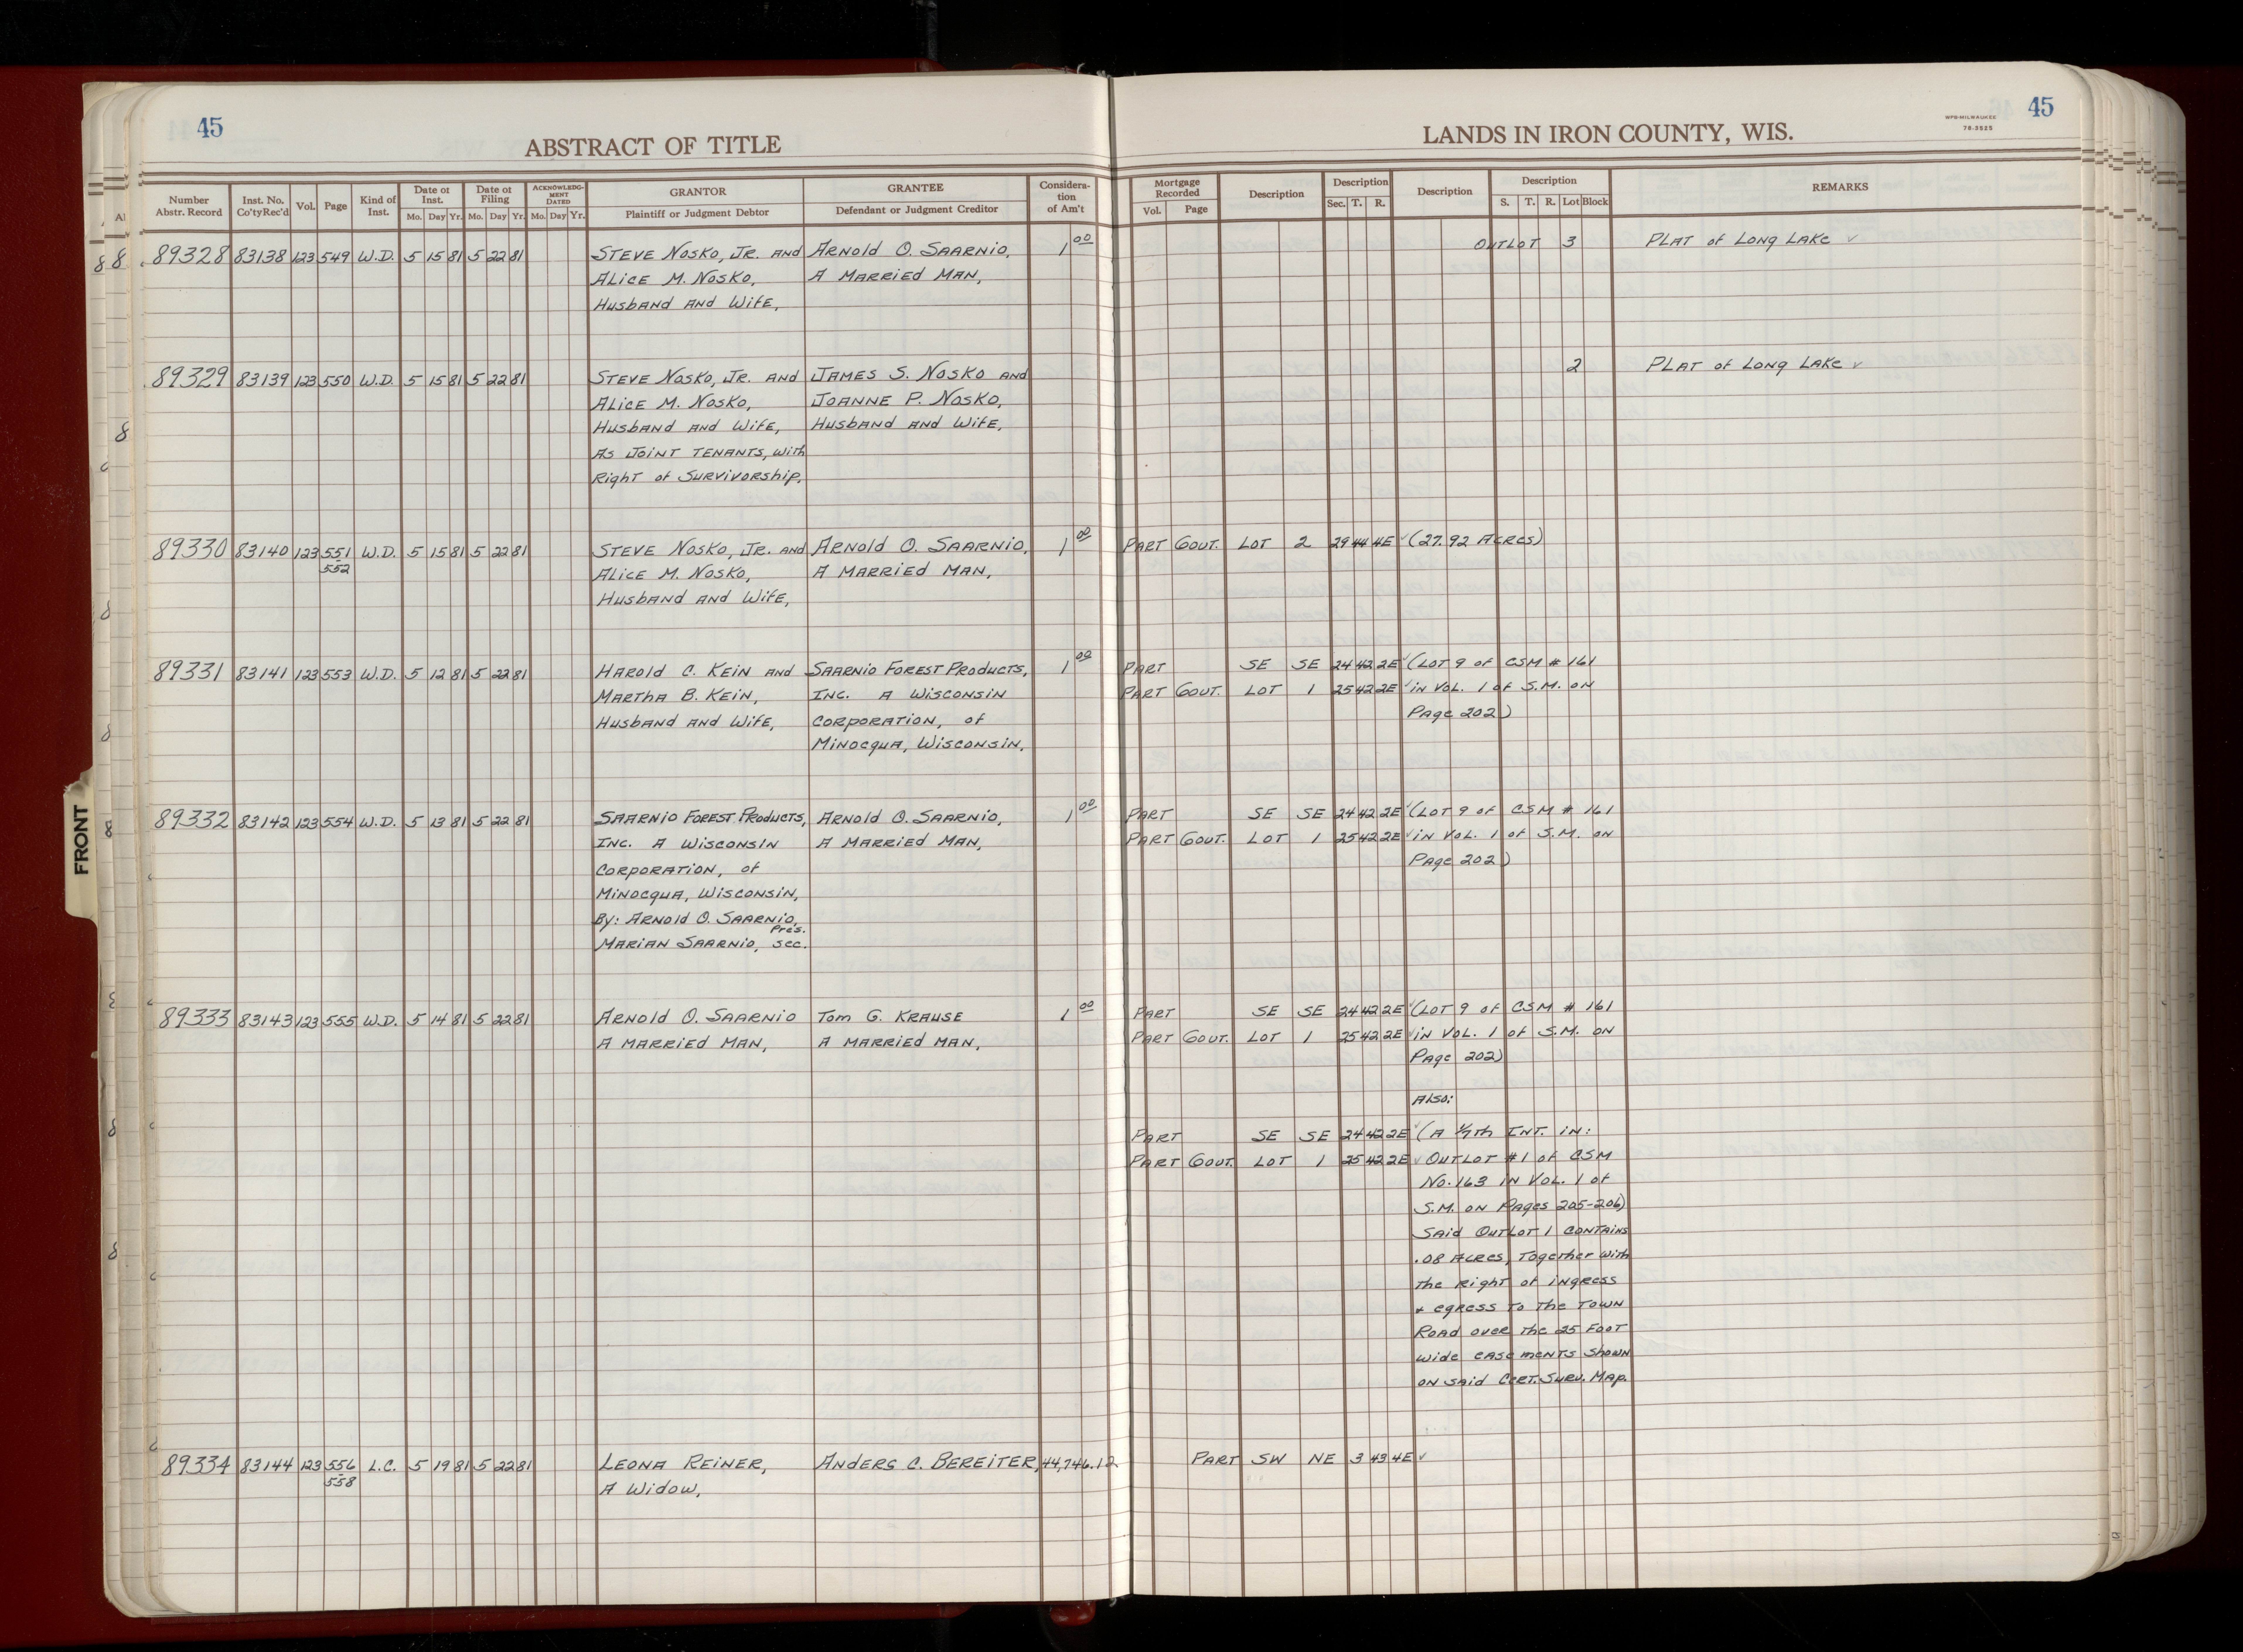 45
ABSTRACT OF TITLE
LANDS IN IRON COUNTY, WIS.
WPB-MILWAUKEE
78-3525
45
Number Abstr. Record | Inst. No. Co'ty Rec'd | Vol. | Page | Kind of Inst. | Date of Inst. Mo. Day Yr. | Date of Filing Mo. Day Yr. | ACKNOWLEDGMENT DATED Mo. Day Yr. | GRANTOR Plaintiff or Judgment Debtor | GRANTEE Defendant or Judgment Creditor | Consideration of Am't | Mortgage Recorded Vol. Page | Description | Description Sec. T. R. | Description | Description S. T. R. Lot Block | REMARKS
89328 83138 123 549 W.D. 5 15 81 5 22 81 Steve Nosko, Jr. and Arnold O. Saarnio, 1 00 Outlot 3 Plat of Long Lake ✓
Alice M. Nosko, A Married Man,
Husband and Wife,
89329 83139 123 550 W.D. 5 15 81 5 22 81 Steve Nosko, Jr. and James S. Nosko and 2 Plat of Long Lake ✓
Alice M. Nosko, Joanne P. Nosko,
Husband and Wife, Husband and Wife,
As Joint Tenants, with
Right of Survivorship,
89330 83140 123 551 W.D. 5 15 81 5 22 81 Steve Nosko, Jr. and Arnold O. Saarnio, 1 00 Part Gout. Lot 2 29 44 4E ✓ (27.92 Acres)
552 Alice M. Nosko, A Married Man,
Husband and Wife,
89331 83141 123 553 W.D. 5 12 81 5 22 81 Harold C. Kein and Saarnio Forest Products, 1 00 Part SE SE 24 42 2E ✓ (Lot 9 of CSM # 161
Martha B. Kein, Inc. A Wisconsin Part Gout. Lot 1 25 42 2E ✓ in Vol. 1 of S.M. on
Husband and Wife, Corporation, of Page 202)
Minocqua, Wisconsin,
89332 83142 123 554 W.D. 5 13 81 5 22 81 Saarnio Forest Products, Arnold O. Saarnio, 1 00 Part SE SE 24 42 2E ✓ (Lot 9 of CSM # 161
Inc. A Wisconsin A Married Man, Part Gout. Lot 1 25 42 2E ✓ in Vol. 1 of S.M. on
Corporation, of Page 202)
Minocqua, Wisconsin,
By: Arnold O. Saarnio, Pres.
Marian Saarnio, Sec.
89333 83143 123 555 W.D. 5 14 81 5 22 81 Arnold O. Saarnio Tom G. Krause 1 00 Part SE SE 24 42 2E ✓ (Lot 9 of CSM # 161
A Married Man, A Married Man, Part Gout. Lot 1 25 42 2E ✓ in Vol. 1 of S.M. on
Page 202)
Also:
Part SE SE 24 42 2E ✓ (A 1/7th Int. in:
Part Gout. Lot 1 25 42 2E ✓ Outlot #1 of CSM
No. 163 in Vol. 1 of
S.M. on Pages 205-206)
Said Outlot 1 contains
.08 Acres, Together with
the Right of ingress
& egress to the Town
Road over the 25 foot
wide easements shown
on said Cert. Surv. Map.
89334 83144 123 556 L.C. 5 19 81 5 22 81 Leona Reiner, Anders C. Bereiter, 44,746.12 Part SW NE 3 43 4E ✓
558 A Widow,
FRONT